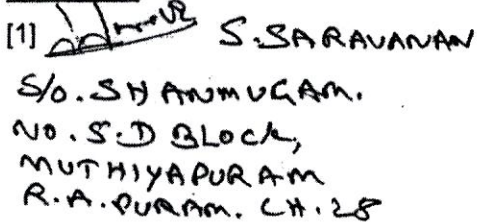 [1] S.SARAVANAN
S/O. SHANMUGAM.
NO. 5.D BLOCK,
MUTHIYAPURAM
R.A.PURAM. CH.28